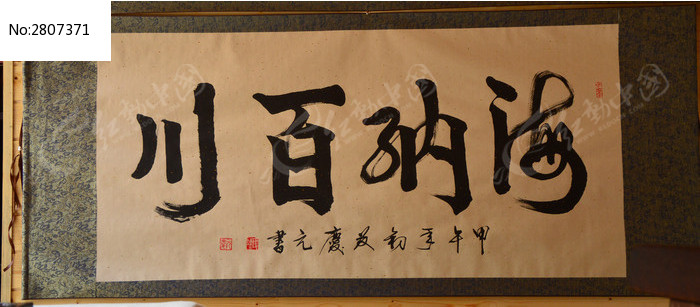 No:2807371
海纳百川
甲午年初夏慶元書